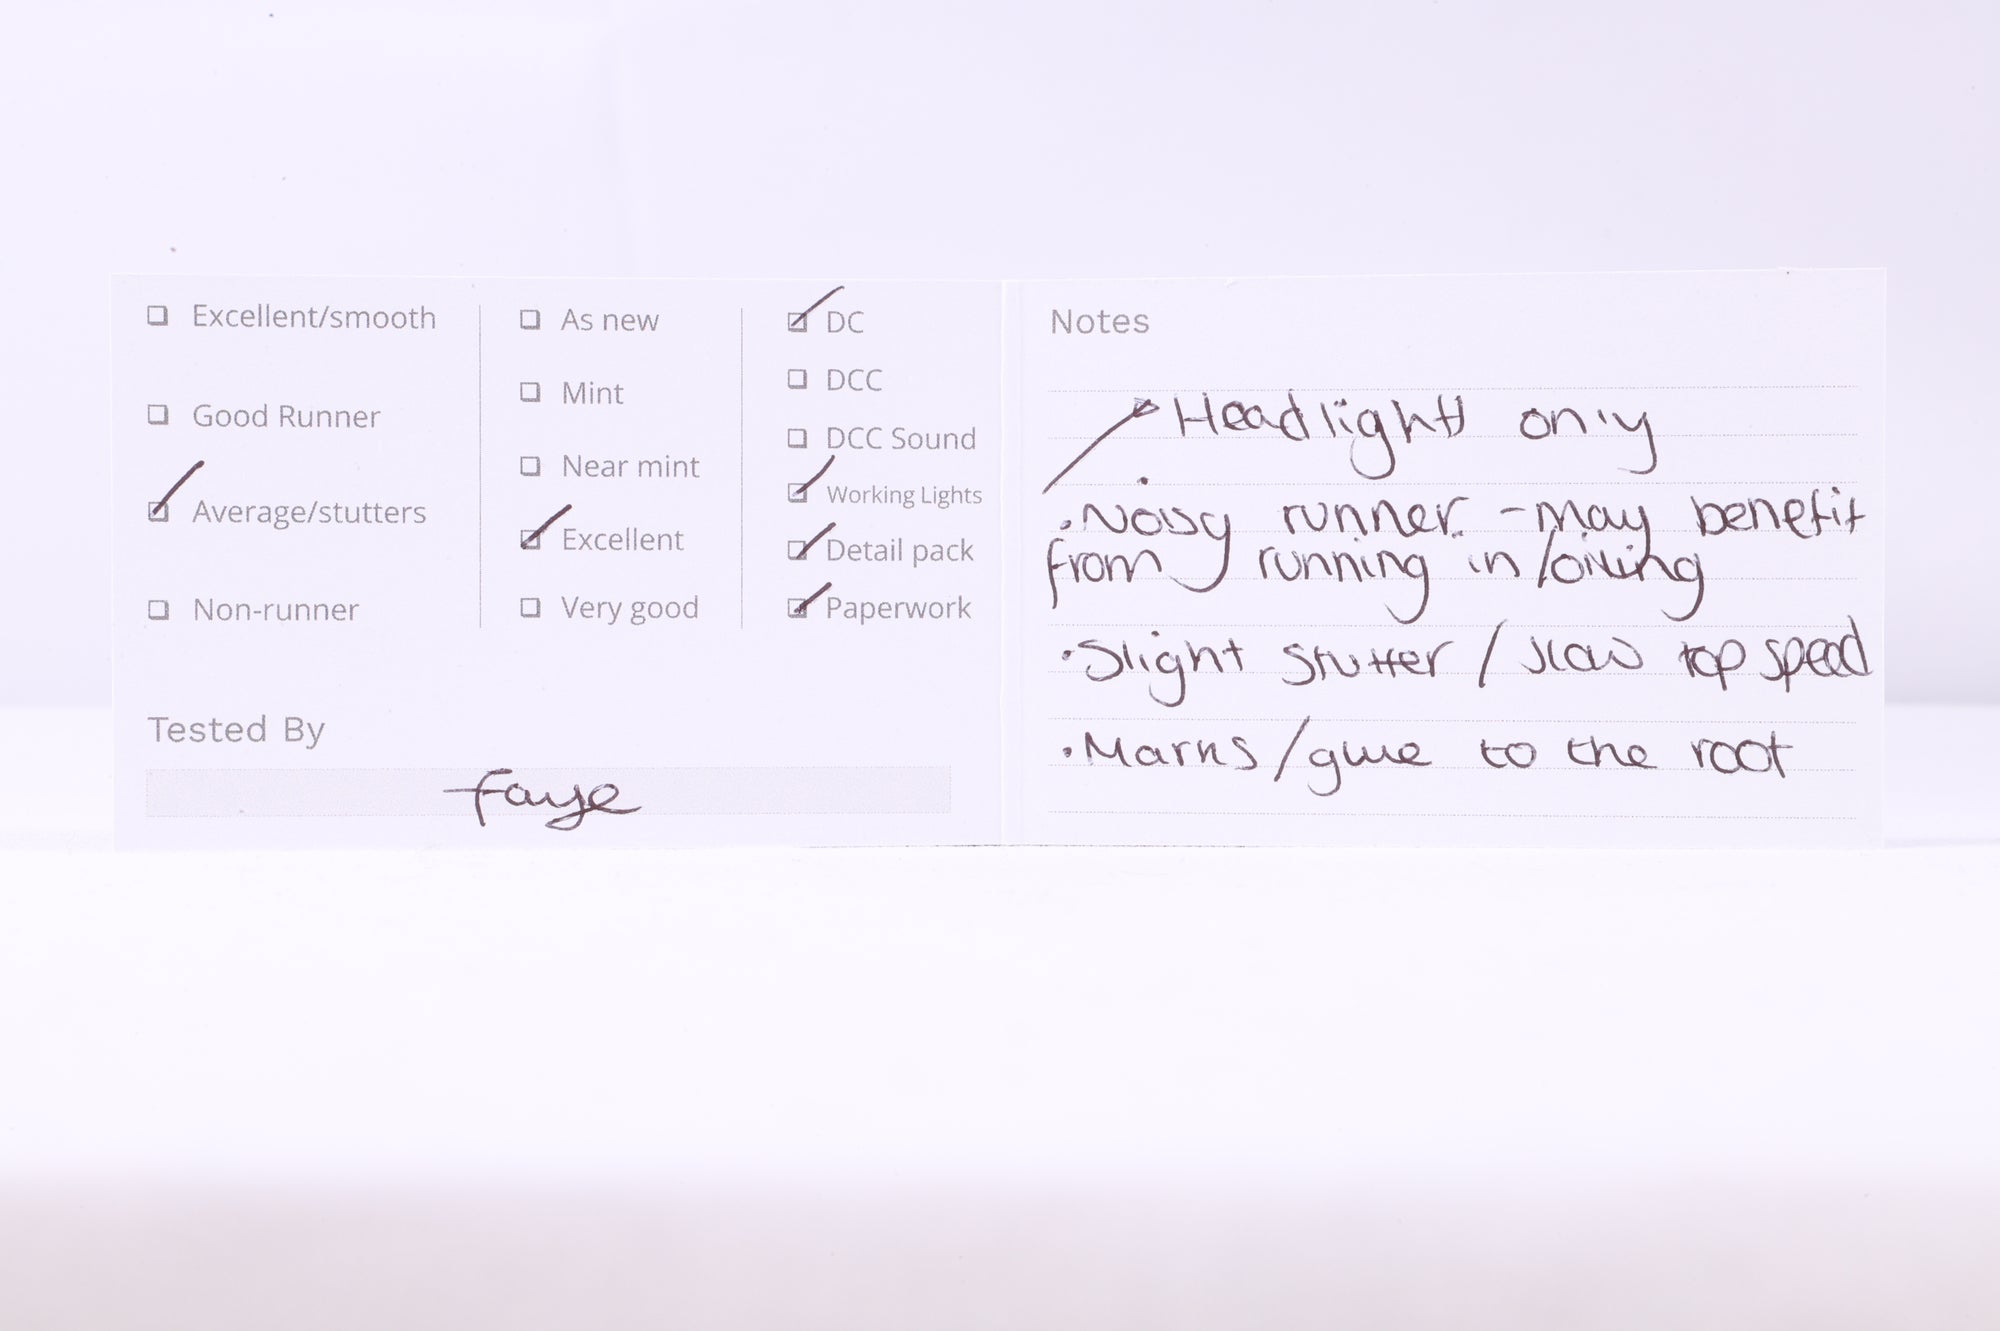 Excellent/smooth
Good Runner
Average/stutters
Non-runner
As new
Mint
Near mint
Excellent
Very good
DC
DCC
DCC Sound
Working Lights
Detail pack
Paperwork
Tested By
Faye
Notes
Headlight only
• Noisy runner. - may benefit
from running in/oiling
• Slight stutter / slow top speed
• Marks/glue to the roof